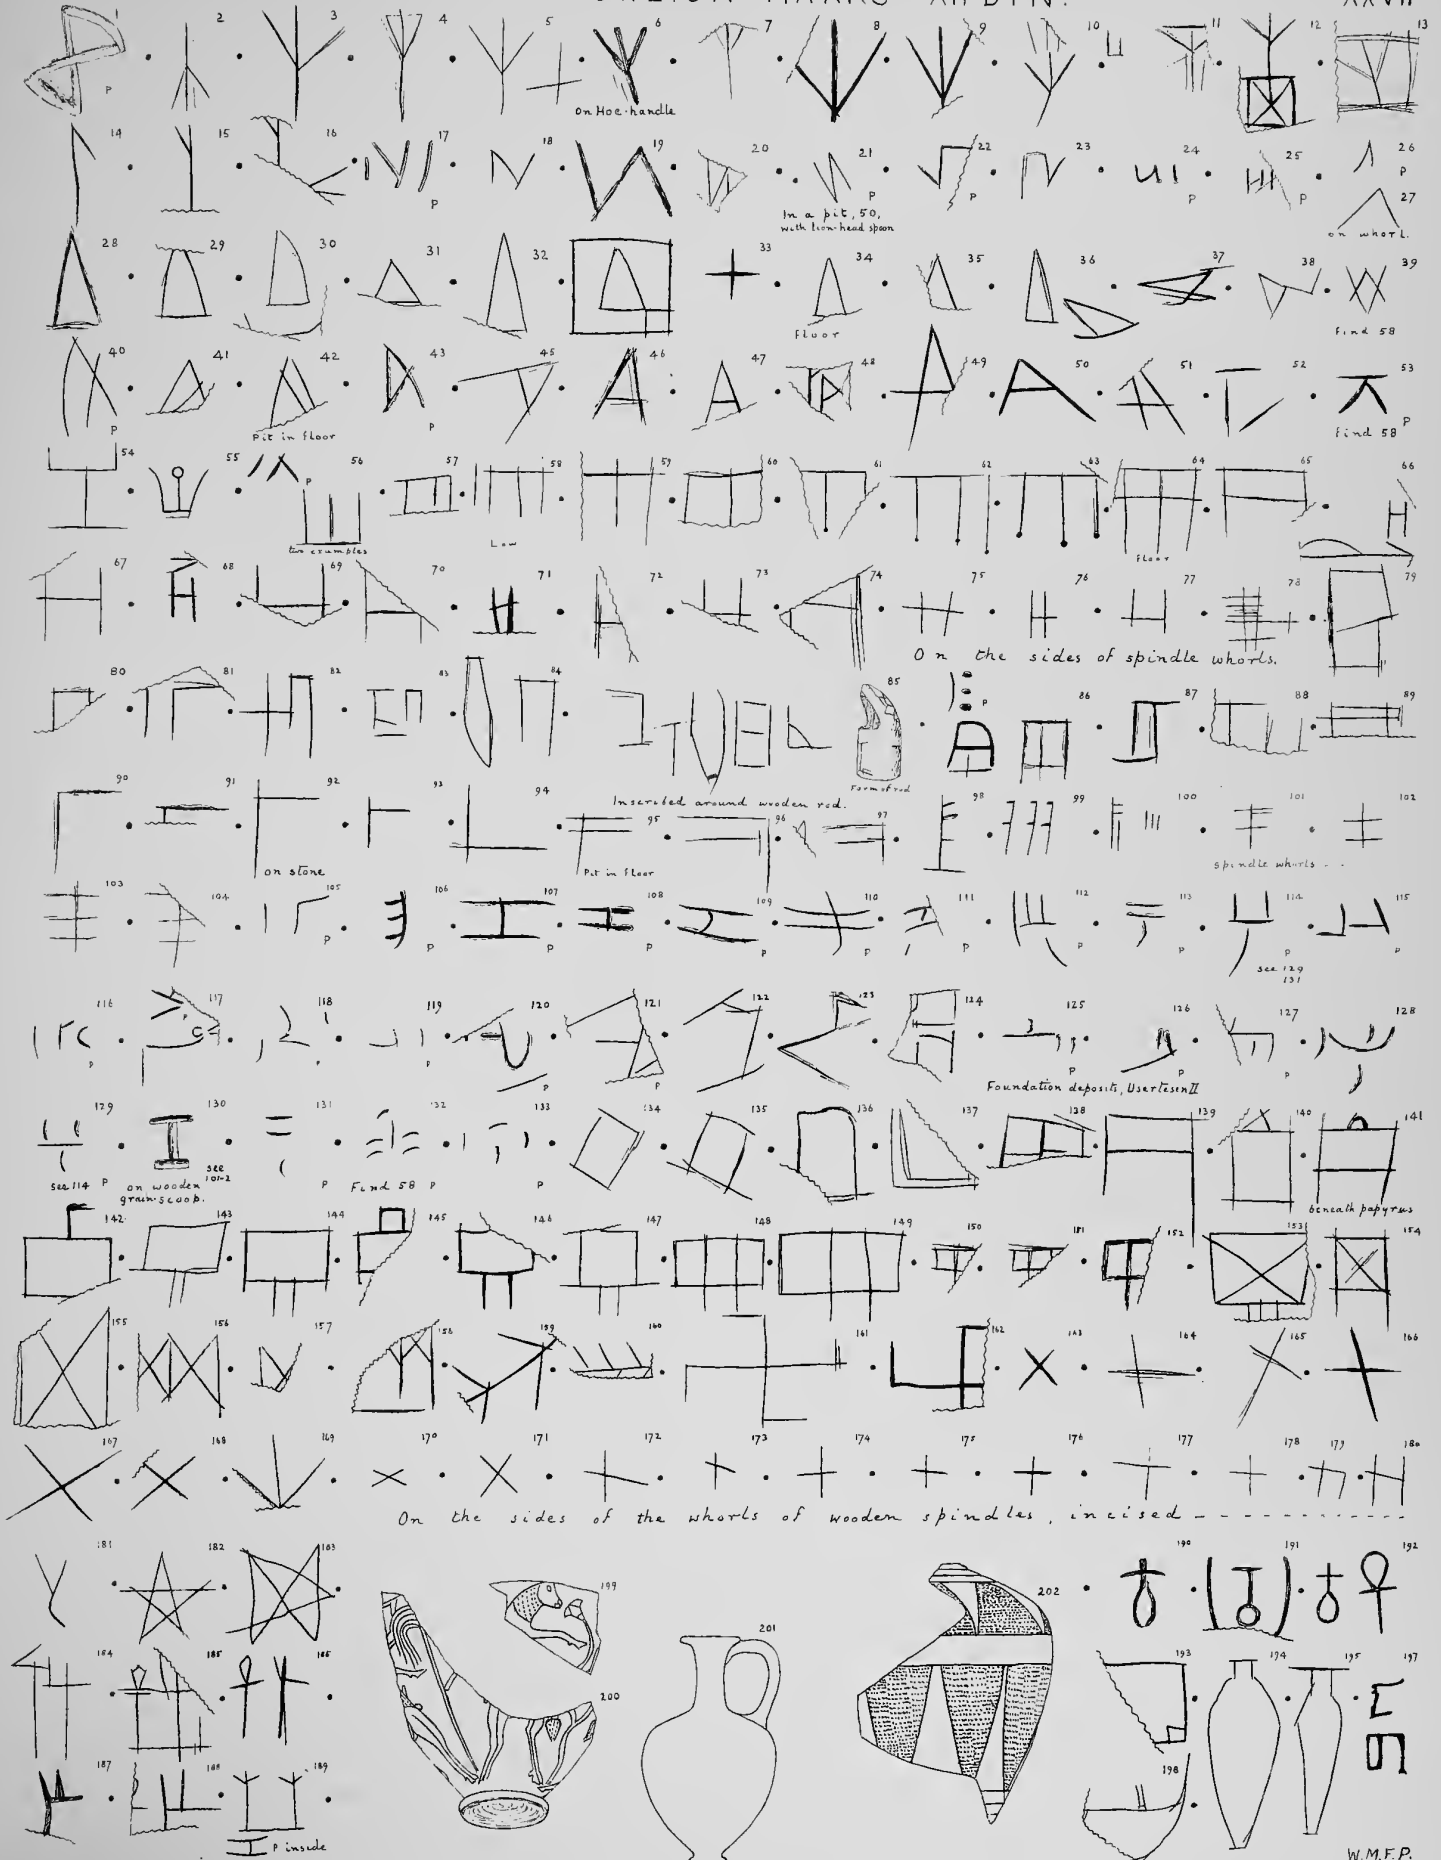 XXVII
1 2 3 4 5 6 7 8 9 10 11 12 13
P
On Hoe-handle
14 15 16 17 18 19 20 21 22 23 24 25 26
P P P P P P
27
In a pit, 50,
with lion-head spoon
on whorl.
28 29 30 31 32 33 34 35 36 37 38 39
floor
Find 58
40 41 42 43 45 46 47 48 49 50 51 52 53
P P P
Pit in floor
Find 58
54 55 56 57 58 59 60 61 62 63 64 65 66
P
two examples
Low
floor
67 68 69 70 71 72 73 74 75 76 77 78 79
On the sides of spindle whorls.
80 81 82 83 84 85 86 87 88 89
P
Form of rod
Inscribed around wooden rod.
90 91 92 93 94 95 96 97 98 99 100 101 102
on stone
Pit in floor
spindle whorls - -
103 104 105 106 107 108 109 110 111 112 113 114 115
P P P P P P P P P P P
see 129
131
116 117 118 119 120 121 122 123 124 125 126 127 128
P P P P P P P
Foundation deposits, Usertesen II
129 130 131 132 133 134 135 136 137 138 139 140 141
see 114 P
on wooden
grain-scoop.
see
101-2
P
Find 58 P
P
beneath papyrus
142 143 144 145 146 147 148 149 150 151 152 153 154
155 156 157 158 159 160 161 162 163 164 165 166
167 168 169 170 171 172 173 174 175 176 177 178 179 180
On the sides of the whorls of wooden spindles, incised - - - - - - - - - - - -
181 182 183 199 202 190 191 192
184 185 186 200 201 193 194 195 197
187 188 189 198
P inside
W.M.F.P.